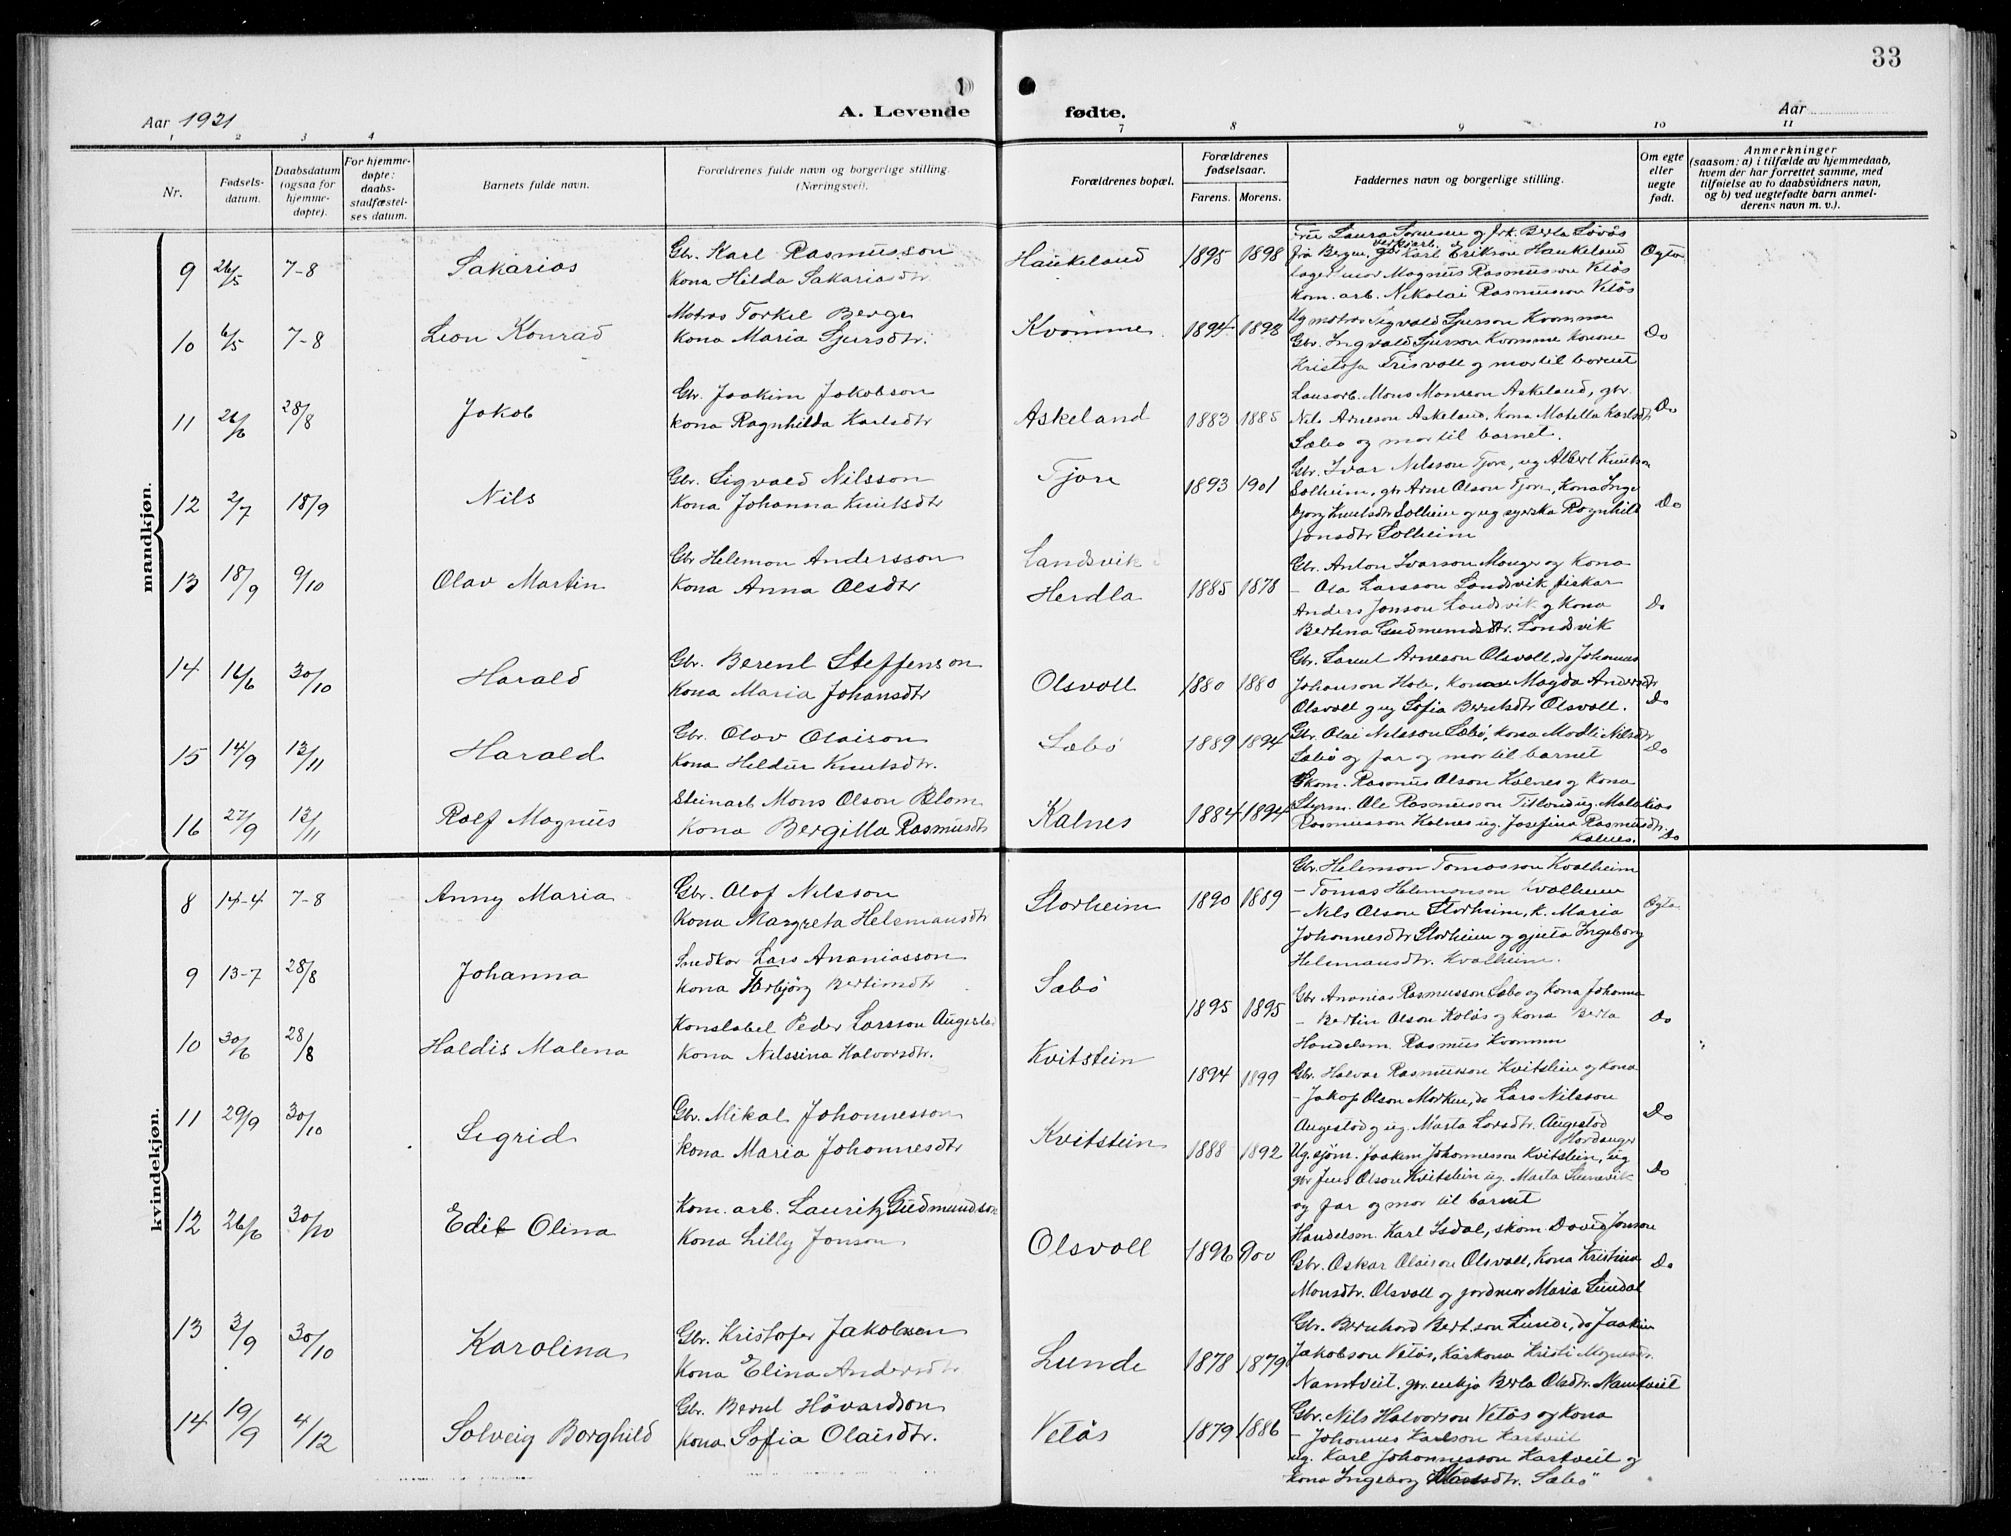 33
Aar 1921
A. Levende
fødte.
Aar
1 2 3 4 7 8 9 10 11
Nr.
Fødsels-
datum.
Daabsdatum
(ogsaa for
hjemme-
døpte).
For hjemme-
døpte:
daabs-
stadfæstel-
ses datum.
Barnets fulde navn.
Forældrenes fulde navn og borgerlige stilling.
(Næringsvei).
Forældrenes bopæl.
Forældrenes
fødselsaar.
Farens. Morens.
Faddernes navn og borgerlige stilling.
Om egte
eller
uegte
født.
Anmerkninger
(saasom: a) i tilfælde av hjemmedaab,
hvem der har forrettet samme, med
tilføielse av to daabsvidners navn,
og b) ved uegtefødte barn anmel-
derens navn m. v.).
mandkjøn.
9 26/5 7-8 Sakarias
Gbr. Karl Rasmusson
Kona Hilda Sakariasdtr.
Haukeland 1895 1898
Fru Laura Sørensen og frk. Berta Løvås
fra Bergen, gbr Karl Erikson Haukeland
Magnus Rasmusson Vetås
Kom. arb. Nikolai Rasmusson Vetås
Ogta
10 6/5 7-8 Leon Konrad
Matros Torkel Berge
Kona Maria Sjursdtr.
Kvamme 1894 1898
Ug matros Sigvald Sjurson Kvamme
Gbr. Ingvald Sjurson Kvamme konone
Kristofa Trisvoll og mor til barnet
Do
11 26/6 28/8 Jakob
Gbr. Joakim Jakobson
kona Ragnhilda Karlsdtr
Askeland 1883 1885
Lausarb. Mons Monsson Askeland, gbr.
Nils Arneson Askeland, kona Matella Karlsdtr
Sæbø og mor til barnet.
Do
12 2/7 18/9 Nils
Gbr. Sigvald Nilsson
Kona Johanna Knutsdtr
Tjore 1893 1901
Gbr. Ivar Nilsson Tjore, ug Albert Knutson
Solheim, gbr Arne Olson Tjore, Kona Inge
bjørg Knutsdtr Solheim og ug syerska Ragnhild
Jonsdtr Solheim
Do
13 18/9 9/10 Olav Martin
Gbr Helemon Andersson
Kona Anna Olsdtr
Landsvik
Herdla 1885 1878
Gbr. Anton Ivarson Manger og Kona
- Ola Larsson Landsvik fiskar
Anders Jonson Landsvik og Kona
Bertina Gudmundsdtr. Landsvik
Do
14 16/6 30/10 Harald
Gbr. Berent Steffenson
Kona Maria Johansdtr
Olsvoll 1880 1880
Gbr. Samuel Arneson Olsvoll, do Johannes
Johanson Hole, konone Magda Andersdtr
Olsvoll og ug Sofia Berntsdtr Olsvoll.
Do
15 14/9 13/11 Harald
Gbr. Olav Olaison
Kona Hildur Knutsdtr.
Sæbø 1889 1894
Gbr. Olai Nilsson Sæbø, kona Modli Nilsdtr
Sæbø og far og mor til barnet
Do
16 27/9 13/11 Rolf Magnus
Steinarb Mons Olson Blom
Kona Bergitta Rasmusdtr
Kalnes 1884 1894
Skom. Rasmus Olson Kalnes og Kona
Styrm. Ole Rasmusson Titland ug. Malakias
Rasmusson Kalnes ug. Josefina Rasmusdtr.
Kalnes.
Do
kvindekjøn.
8 14-4 7-8 Anny Maria
Gbr. Olof Nilsson
Kona Margreta Helemansdtr
Storheim 1890 1889
Gbr. Helemon Tomasson Kvalheim
- Tomas Helemonson Kvalheim
- Nils Olson Storheim, k. Maria
Johannesdtr Storheim og gjenta Ingeborg
Helemansdtr. Kvalheim.
Ogta
9 13-7 28/8 Johanna
Snedkar Lars Ananiasson
Kona Torbjørg Bertinsdtr
Sæbø 1895 1895
Gbr Ananias Rasmusson Sæbø og Kona Johanna
- Bertin Olson Kolås og Kona Berta
Handelsm. Rasmus Kvamme
Do
10 30/6 28/8 Haldis Malena
Konstabel Peder Larsson Augestad
Kona Nilssina Halvorsdtr.
Kvitstein 1894 1899
Gbr. Halvar Rasmusson Kvitstein og Kona
- Jakop Olson Morken, do Lars Nilsson
Augestad og ug. Marta Larsdtr. Augestad
Hordanger
Do
11 29/9 30/10 Sigrid
Gbr. Mikal Johannesson
Kona Maria Johannesdtr
Kvitstein 1888 1892
Ug. sjøm. Joakim Johannesson Kvitstein, ug
gbr Jens Olson Kvitstein ug. Marta
og far og mor til barnet
Do
12 26/6 30/10 Edit Olina
Kom. arb. Lauritz Gudmundson
Kona Lilly Jonson
Olsvoll 1896 900
Handelsm. Karl Isdal, skom. David Jonson
Gbr. Oskar Olaison Olsvoll, Kona Kristina
Monsdtr. Olsvoll og jordmor Maria Sundal
Do
13 3/9 30/10 Karolina
Gbr. Kristofer Jakobsen
Kona Elina Andersdtr
Lunde 1878 1879
Gbr. Bernhard Bertson Lunde, do Joakim
Jakobson Vetås, Kårkona Kristi Mognesdtr.
Namtveit. gbr. enkja Berta Olsdtr. Namtveit
14 19/9 4/12 Solveig Borghild
Gbr. Bernt Håvardson
Kona Sofia Olaisdtr.
Vetås 1879 1886
Gbr. Nils Halvorson Vetås og Kona
- Johannes Karlson Kartveit
ug. Karl Johannesson Kartveit og
kona Ingeborg Sæbø